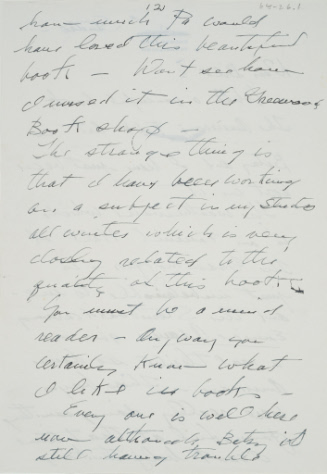 (2)
how much Pa would
have loved this beautiful
book – Don't see how
I missed it in the Greenwood
Book shop –
The strange thing is
that I have been working
on a subject in my studio
all winter which is very
closely related to the
quality of this book.
You must be a mind
reader – Anyway you
certainly know what
I like in books –
Every one is well here
now although Betsy is
still having trouble